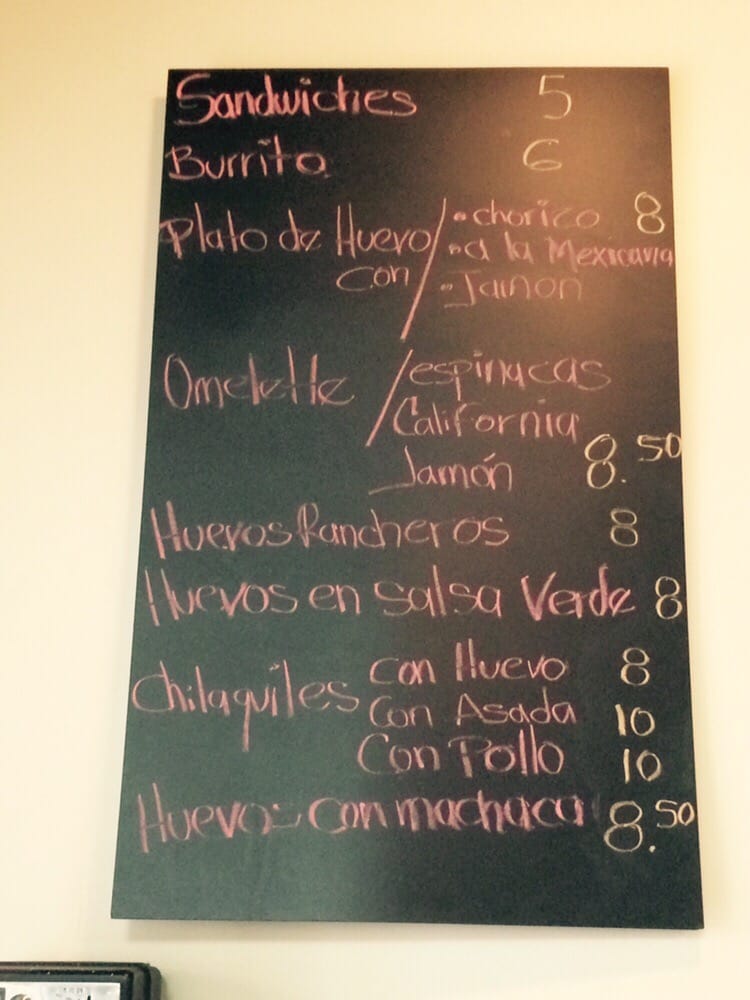 Sandwiches 5
Burrito 6
Plato de Huevo con / • chorico 8
• a la Mexicana
• Jamon
Omelette / espinacas
California
Jamón 8.50
Huevos Rancheros 8
Huevos en salsa Verde 8
Chilaquiles con Huevo 8
Con Asada 10
Con Pollo 10
Huevos con machaca 8.50